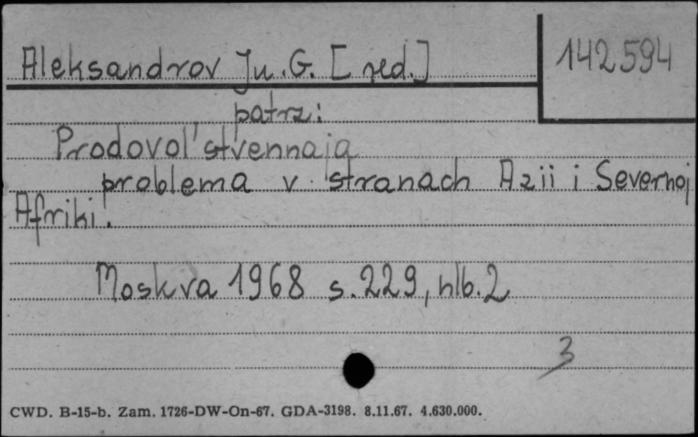 Aleksandrov Ju. G. [red.]
142594
patrz:
Prodovol'stvennaja
problema v stranach Azii i Severnoj
Afriki.
Moskva 1968 s. 229, nlb. 2
3
CWD. B-15-b. Zam. 1726-DW-On-67. GDA-3198. 8.11.67. 4.630.000.